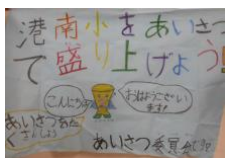 港南小をあいさつ
で盛り上げよう!
こんにちは
おはようござい
ます!
あいさつをた
くさんしよう
あいさつ委員会